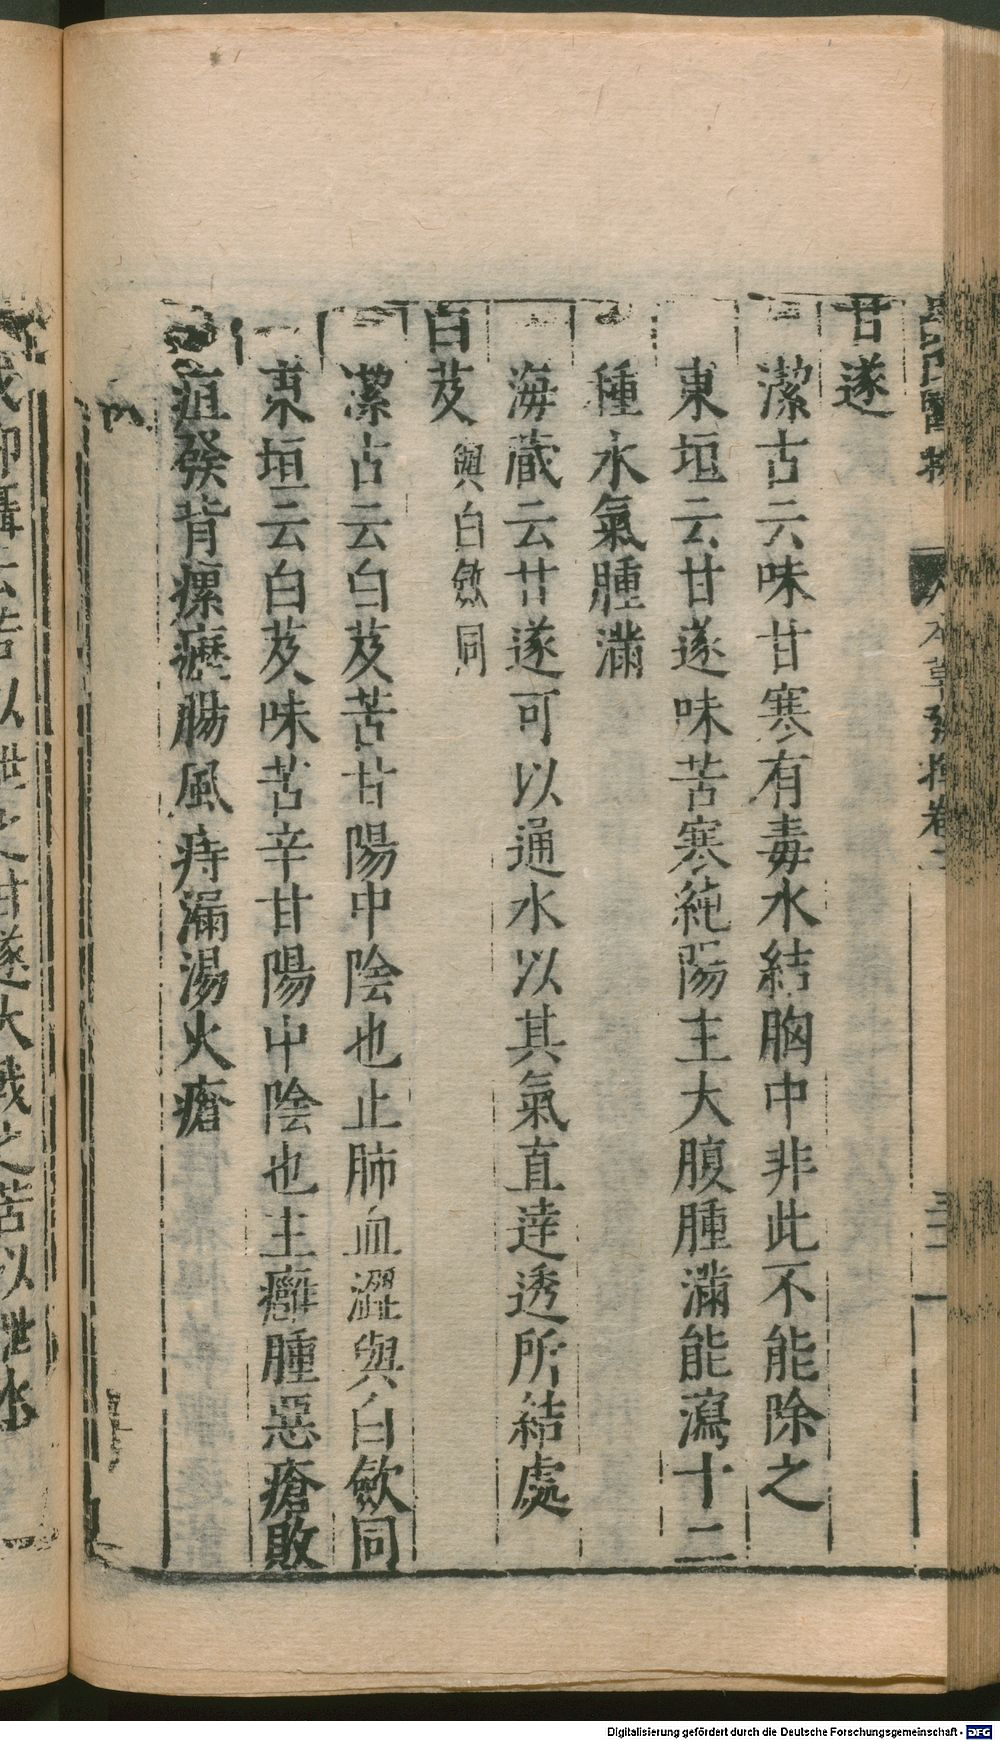 薛氏醫按　本草發揮卷二　三十一
甘遂
潔古云味甘寒有毒水結胸中非此不能除之
東垣云甘遂味苦寒純陽主大腹腫滿能瀉十二
種水氣腫滿
海藏云甘遂可以通水以其氣直達透所結處
白芨與白斂同
潔古云白芨苦甘陽中陰也止肺血澀與白斂同
東垣云白芨味苦辛甘陽中陰也主癰腫惡瘡敗
疽發背瘰癧腸風痔漏湯火瘡
以泄之甘遂大戟之苦以泄水
Digitalisierung gefördert durch die Deutsche Forschungsgemeinschaft - DFG